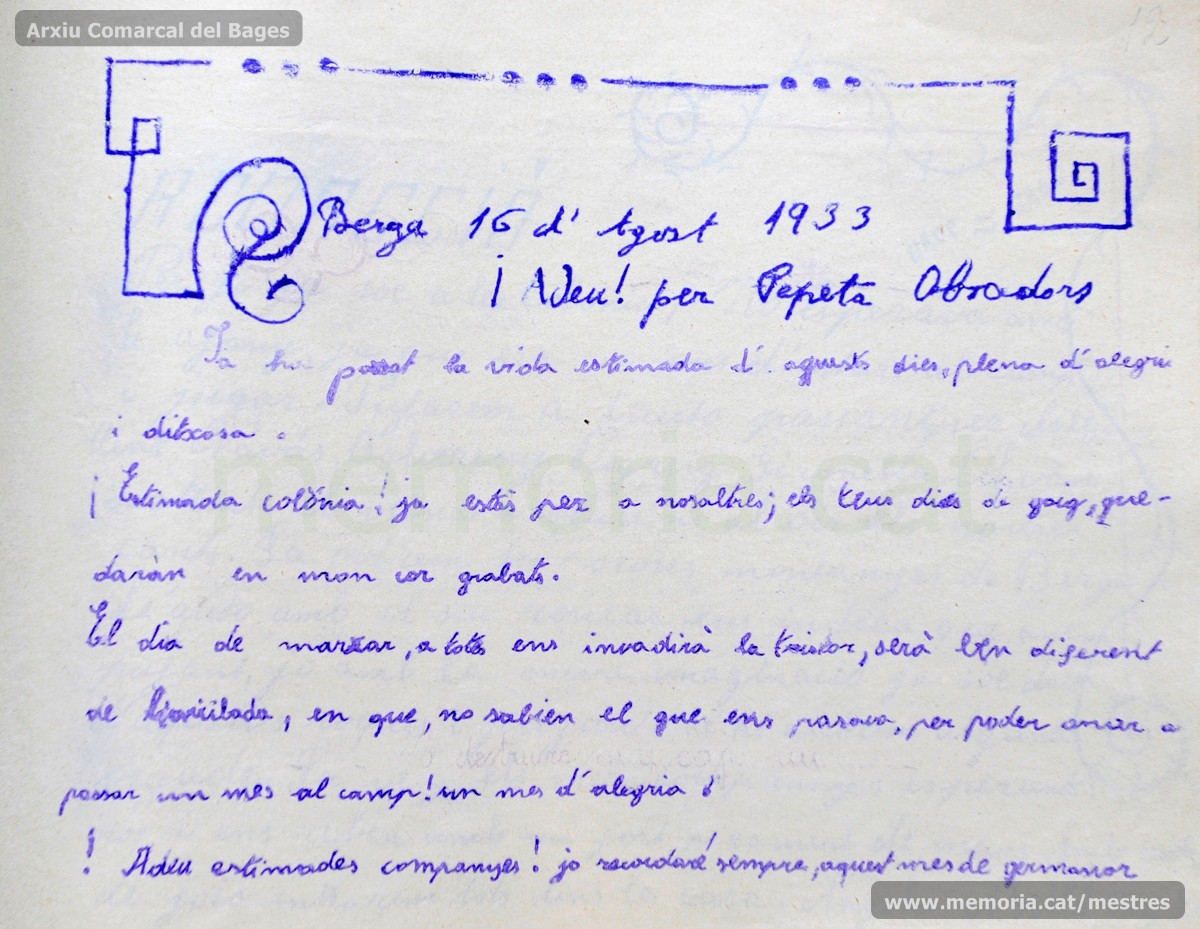 Arxiu Comarcal del Bages
12
Berga 16 d' Agost 1933
¡ Adeu! per Pepeta Obradors
Ja ha passat la vida estimada d' aquests dies, plena d' alegri
i ditxosa.
¡ Estimada colònia! ja estàs per a nosaltres; els teus dies de goig, que-
daràn en mon cor grabats.
El dia de marxar, a tots ens invadirà la tristor, serà ben diferent
de l'arribada, en que, no sabien el que ens pasava, per poder anar a
passar un mes al camp! un mes d' alegria!
! Adeu estimades companyes! jo recordaré sempre, aquest mes de germanor
memoria.cat
www.memoria.cat/mestres